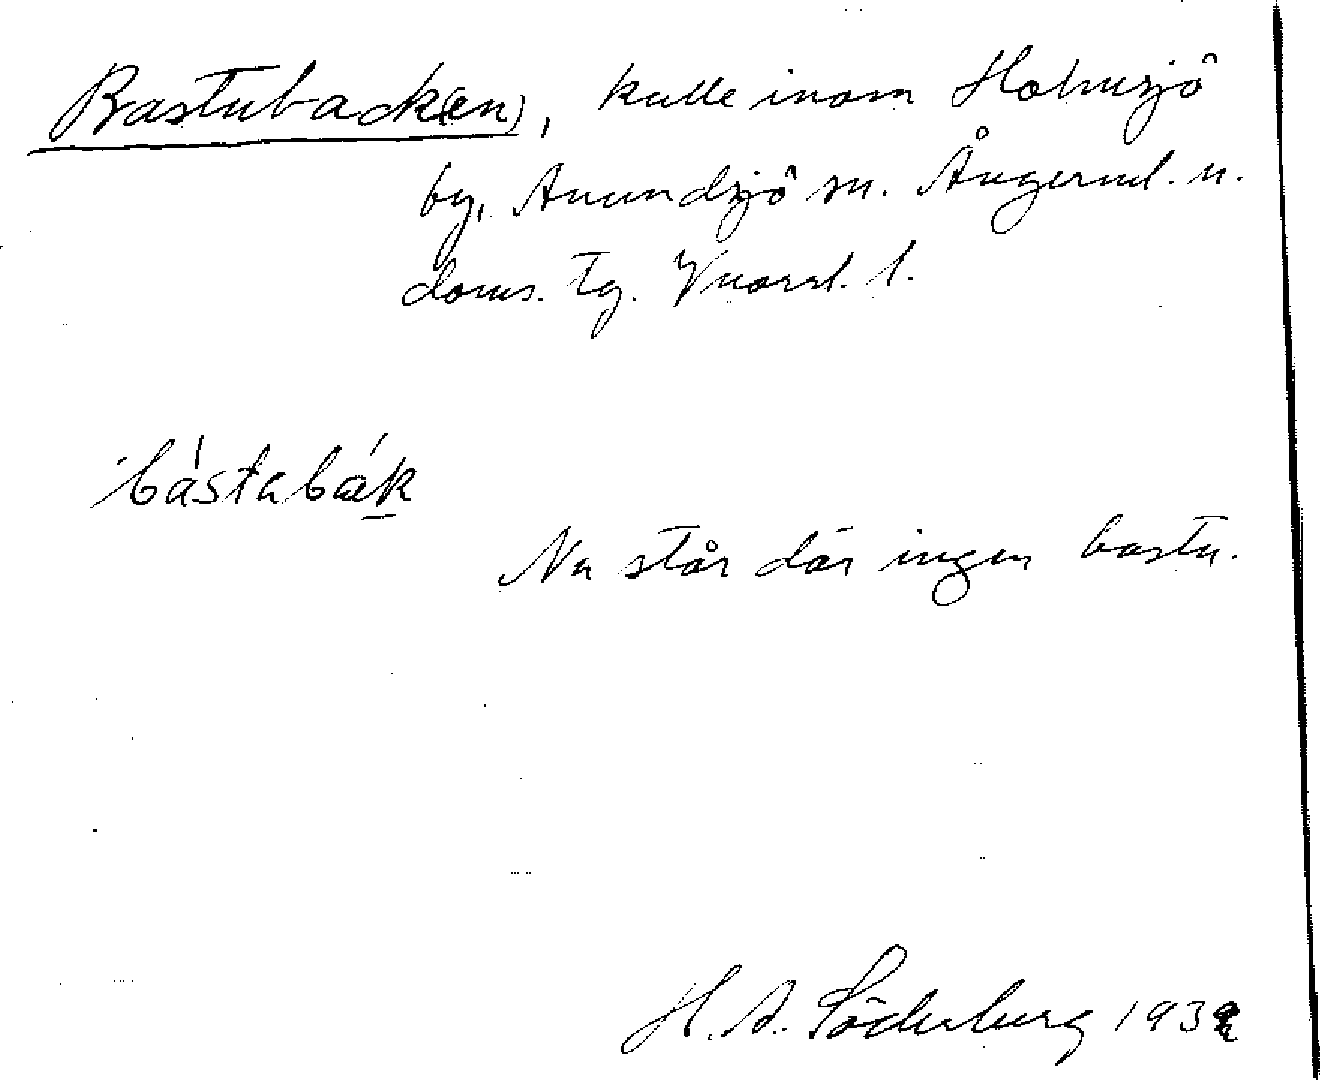 Bastuback(en), kulle inom Holmsjö
by, Anundsjö sn. Ångerml. n.
doms. tg. Vnorrl. l.
bástabák
Nu står där ingen bastu.
H. A. Söderberg